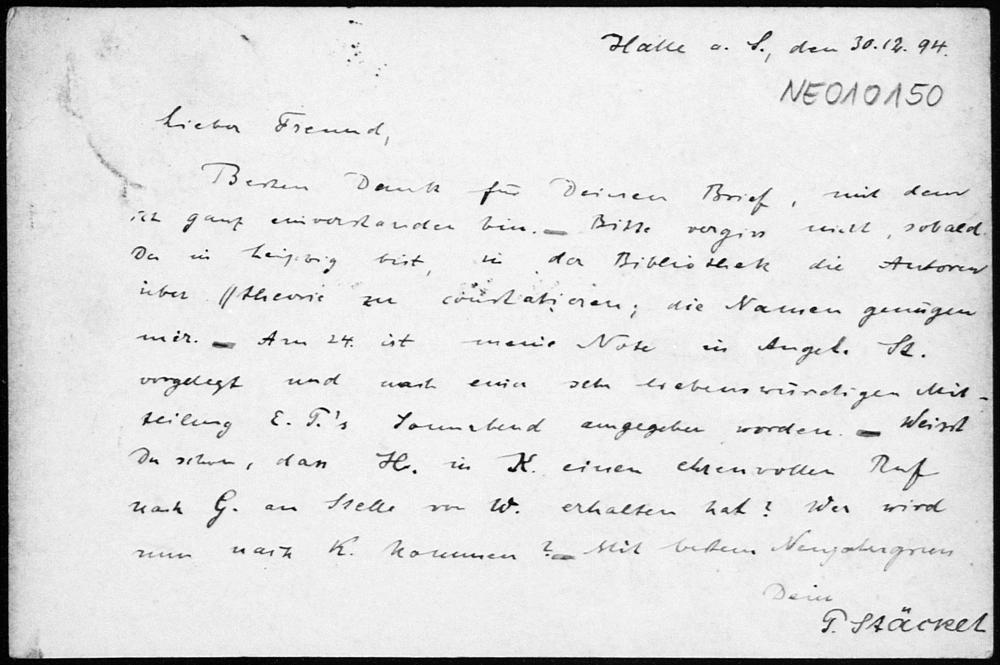 Halle a. S., den 30.12.94.
NE010150
Lieber Freund,
Besten Dank für Deinen Brief, mit dem
ich ganz einverstanden bin. — Bitte vergiss nicht, sobald
Du in Leipzig bist, in der Bibliothek die Autoren
über //theorie zu constatieren; die Namen genügen
mir. — Am 24. ist meine Note in Angel. St.
vorgelegt und nach einer sehr liebenswürdigen Mit-
teilung E. T.'s Sonnabend angegeben worden. — Weisst
Du schon, dass H. in K. einen ehrenvollen Ruf
nach G. an Stelle von W. erhalten hat? Wer wird
nun nach K. kommen? — Mit bestem Neujahrsgruss
Dein
P. Stäckel